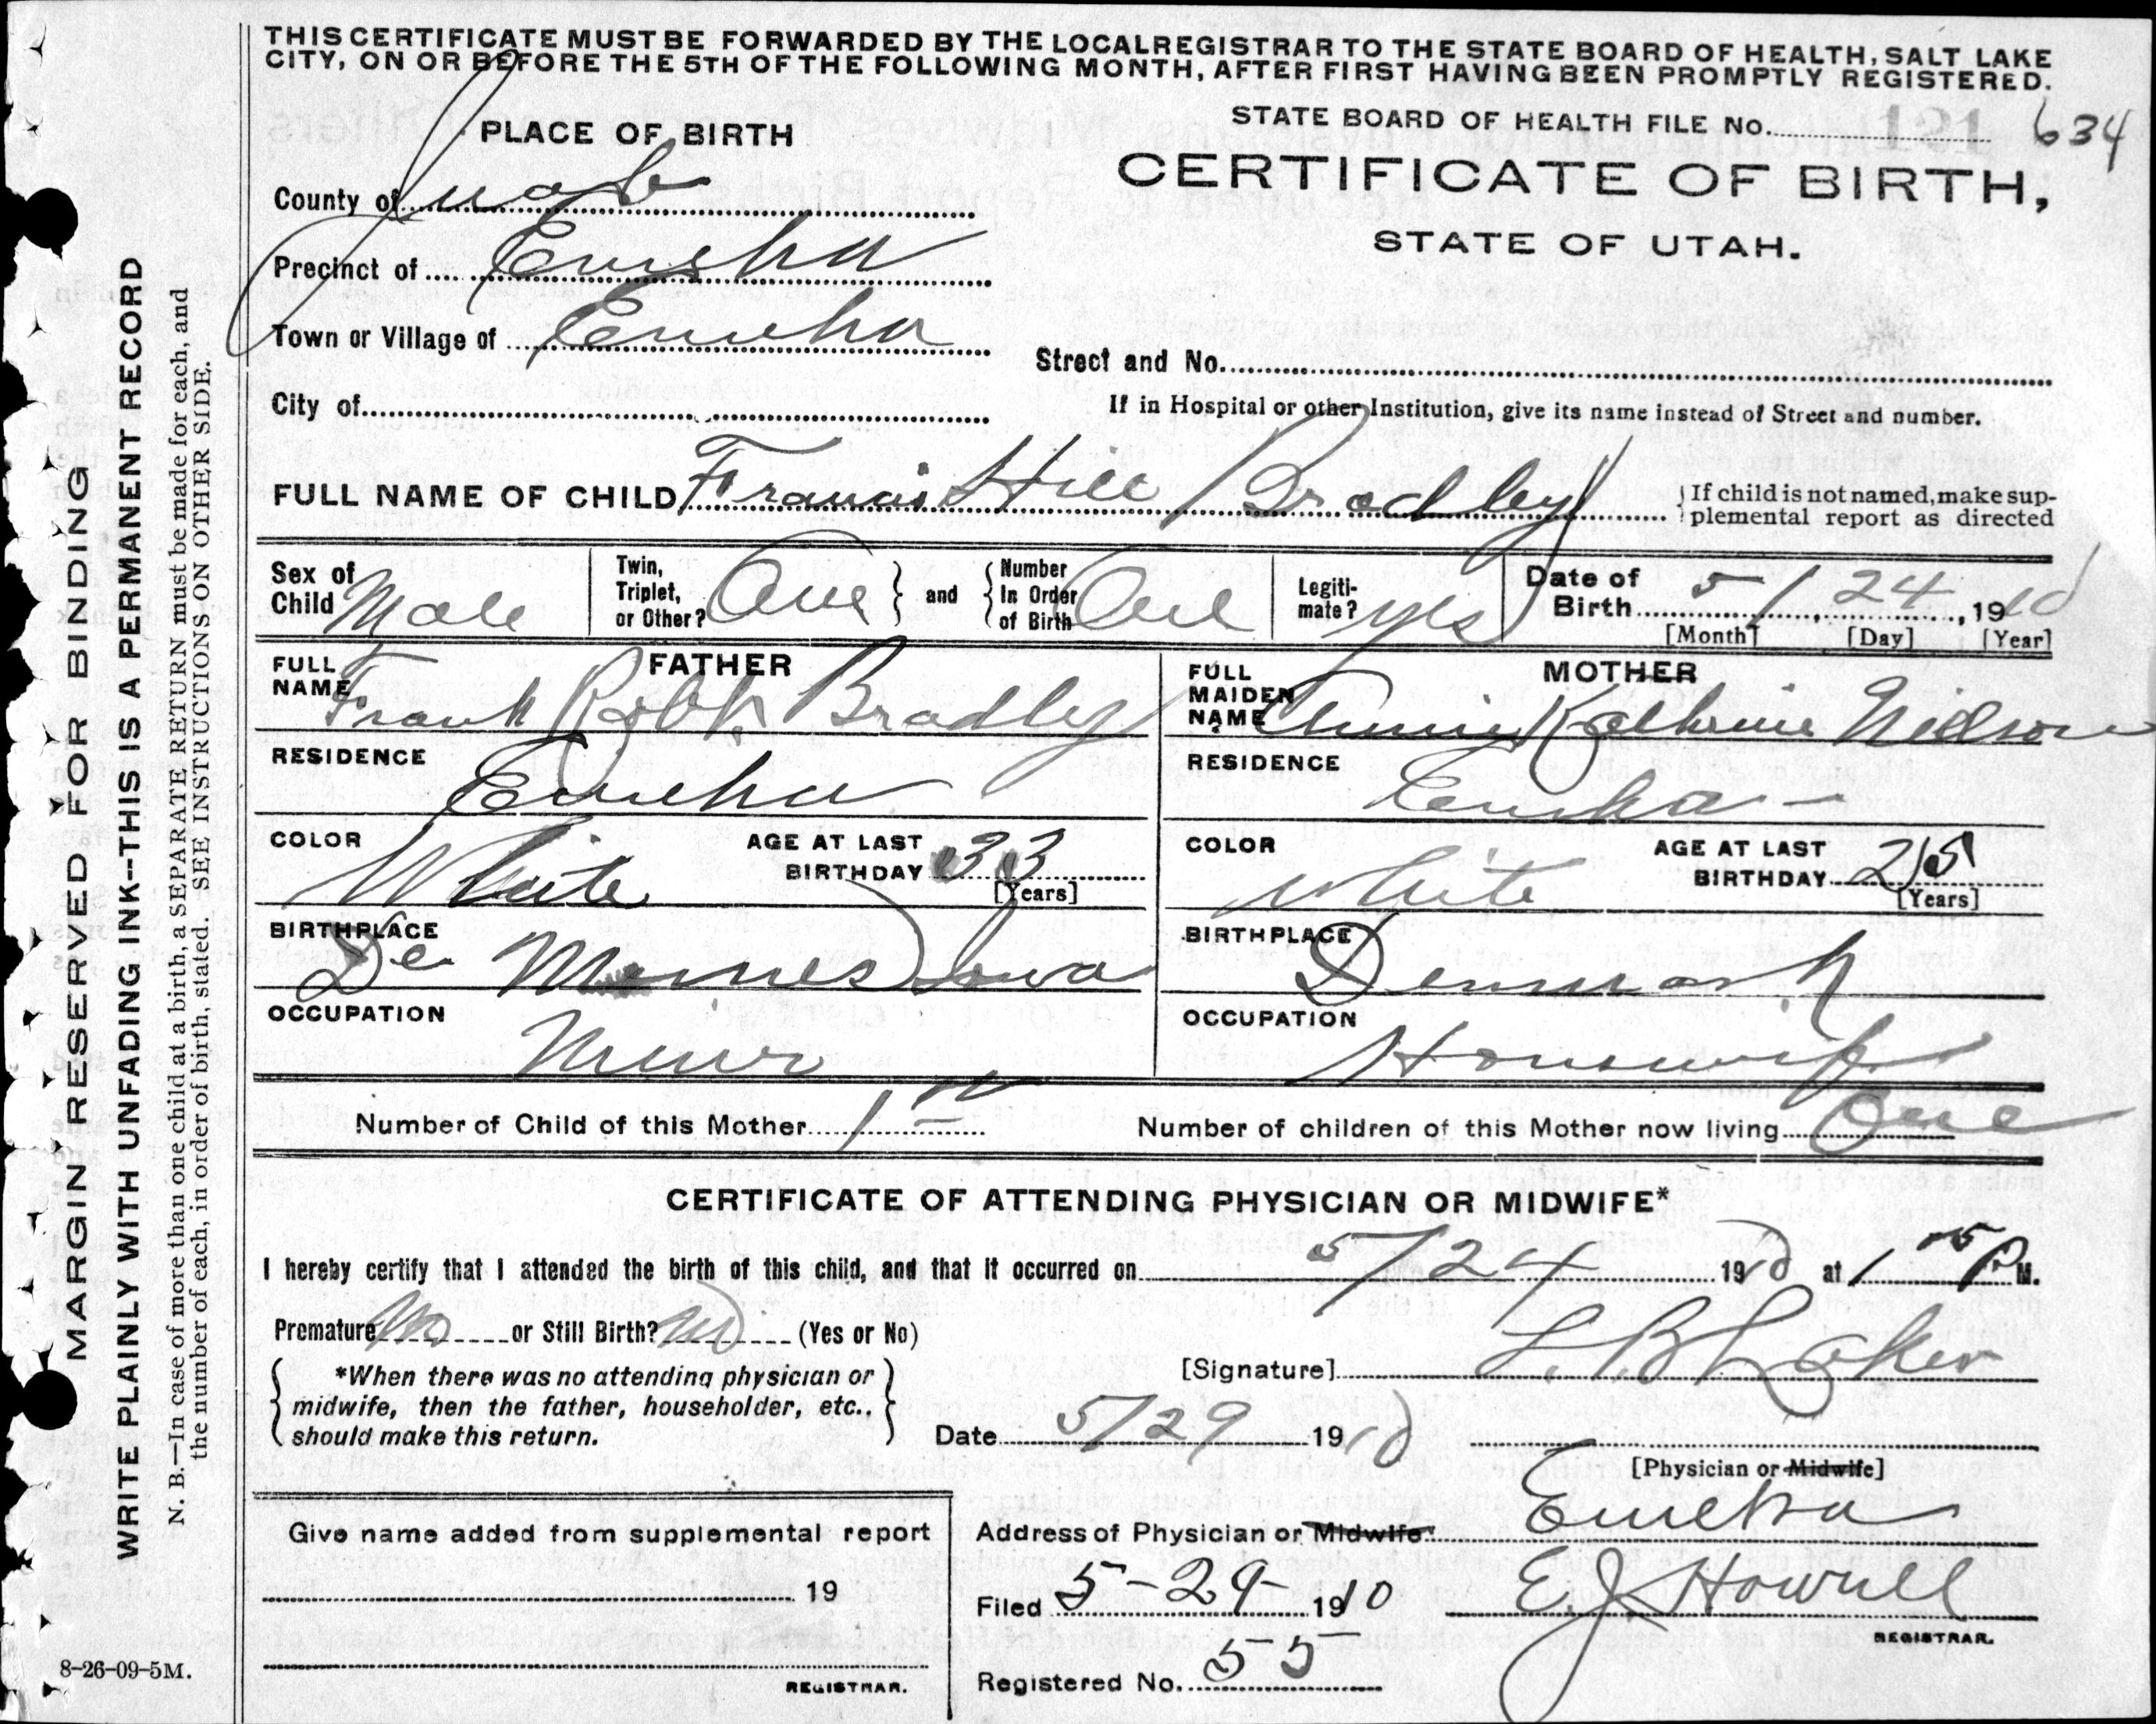 THIS CERTIFICATE MUST BE FORWARDED BY THE LOCAL REGISTRAR TO THE STATE BOARD OF HEALTH, SALT LAKE
CITY, ON OR BEFORE THE 5TH OF THE FOLLOWING MONTH, AFTER FIRST HAVING BEEN PROMPTLY REGISTERED.
STATE BOARD OF HEALTH FILE No. 121 634
PLACE OF BIRTH
CERTIFICATE OF BIRTH,
STATE OF UTAH.
County of Juab
Precinct of Eureka
Town or Village of Eureka
Street and No.
City of
If in Hospital or other Institution, give its name instead of Street and number.
FULL NAME OF CHILD Francis Hill Bradley
If child is not named, make sup-
plemental report as directed
Sex of Child Male
Twin, Triplet, or Other? One
and
Number In Order of Birth One
Legiti-mate? yes
Date of Birth 5 / 24, 1910
[Month] [Day] [Year]
FATHER
FULL NAME Frank Robb Bradley
RESIDENCE Eureka
COLOR White
AGE AT LAST BIRTHDAY 33
[Years]
BIRTHPLACE De Moines Iowa
OCCUPATION Miner
MOTHER
FULL MAIDEN NAME Annie Katherine Nielson
RESIDENCE Eureka -
COLOR White
AGE AT LAST BIRTHDAY 25
[Years]
BIRTHPLACE Denmark
OCCUPATION Housewife
Number of Child of this Mother 1st
Number of children of this Mother now living One
CERTIFICATE OF ATTENDING PHYSICIAN OR MIDWIFE*
I hereby certify that I attended the birth of this child, and that it occurred on 5/24 1910 at 1 P M.
Premature No or Still Birth? No (Yes or No)
*When there was no attending physician or
midwife, then the father, householder, etc..
should make this return.
[Signature] L. B. Laker
Date 5/29 1910
[Physician or Midwife]
Address of Physician or Midwife Eureka
Give name added from supplemental report
19
REGISTRAR.
Filed 5-29- 1910
E. J. Howell
REGISTRAR.
Registered No. 55
8-26-09-5M.
MARGIN RESERVED FOR BINDING
WRITE PLAINLY WITH UNFADING INK--THIS IS A PERMANENT RECORD
N. B.—In case of more than one child at a birth, a SEPARATE RETURN must be made for each, and
the number of each, in order of birth, stated. SEE INSTRUCTIONS ON OTHER SIDE.